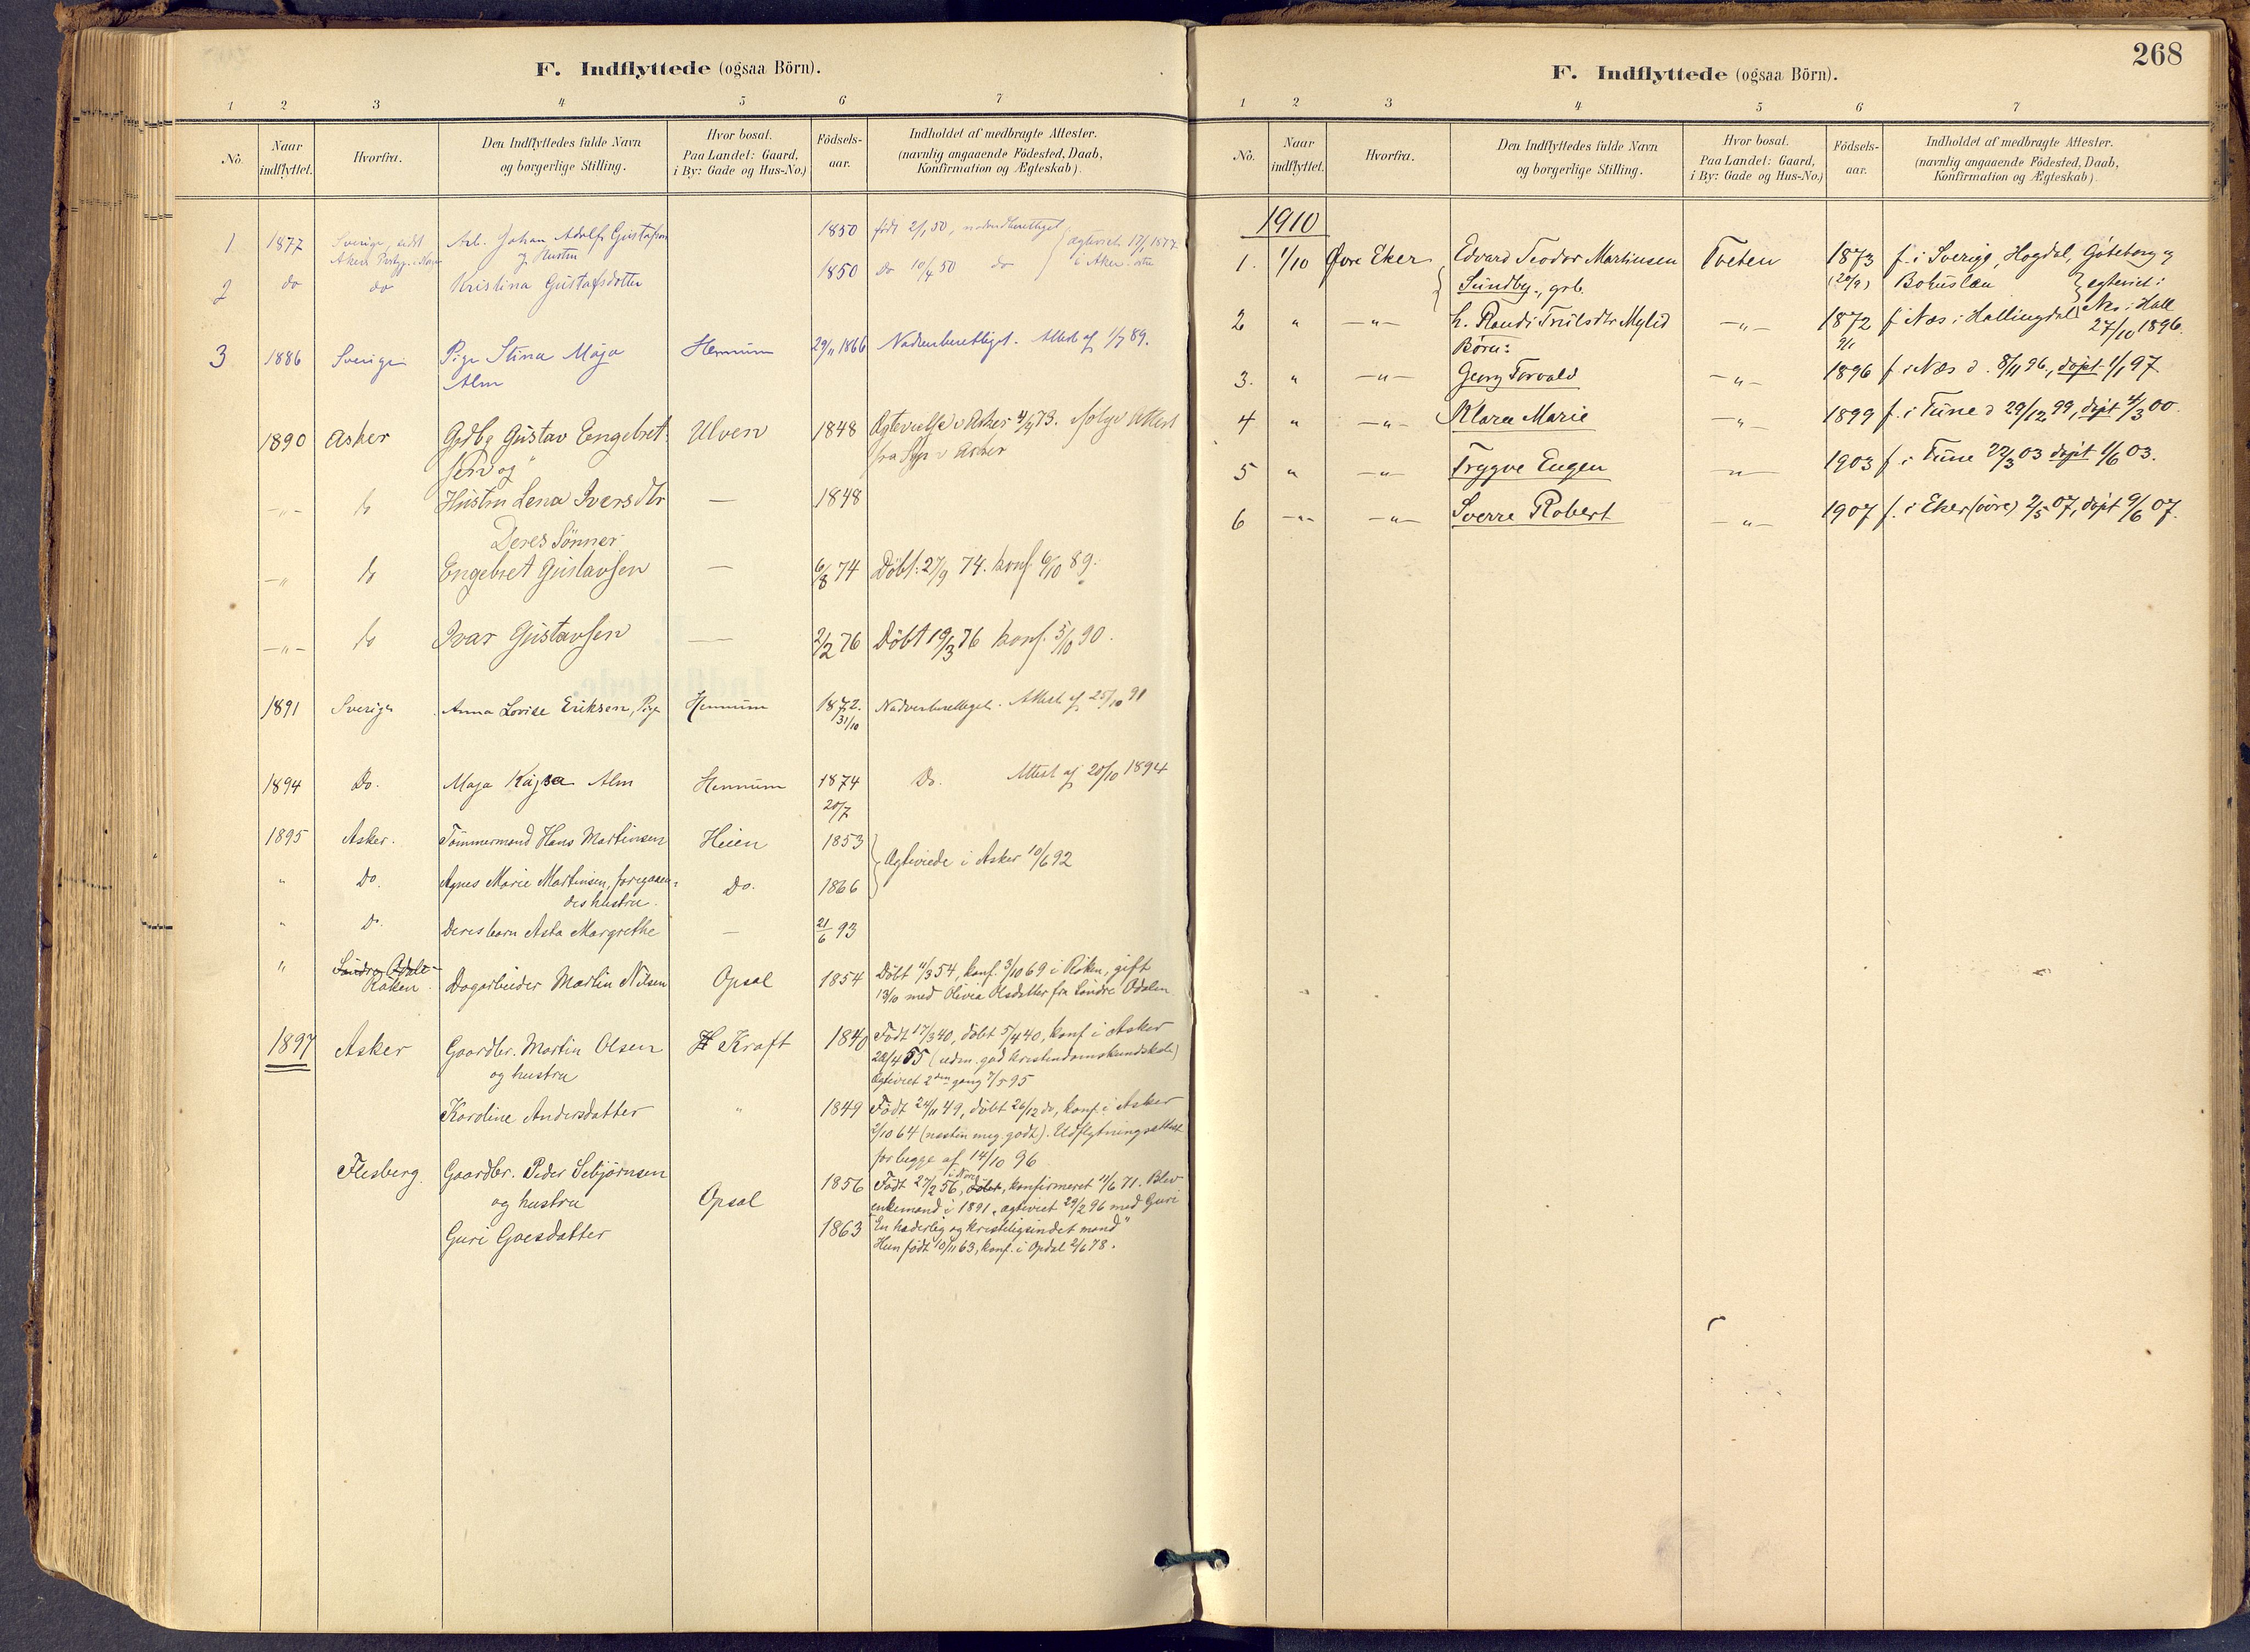 F. Indflyttede (ogsaa Börn).
1 2 3 4 5 6 7
No. Naar indflyttet. Hvorfra. Den Indflyttedes fulde Navn og borgerlige Stilling. Hvor bosat. Paa Landet: Gaard, i By: Gade og Hus-No.) Födsels-aar. Indholdet af medbragte Attester. (navnlig angaaende Födested, Daab, Konfirmation og Ægteskab).
1 1877 Sverige, sidst Arb. Johan Adolf Gustafson 1850 født 2/1 50,
Aker og Hustru
2 do do Kristina Gustafsdotter 1850 Do 10/4 50 do i Aker
3 1886 Sverige Pige Stina Maja Hennum 29/11 1866 Nadverberettiget. Attest af 1/7 89.
Alm
1890 Asker Gdbr Gustav Engebret- Ulven 1848 Ægteviede i Asker 4/4 73. ifølge Attest
sen og fra Sgp i Asker
-"- do Hustru Lena Iversdtr — 1848
Deres Sönner
-"- do Engebret Gustavsen — 6/8 74 Döbt. 27/9 74. konf. 6/10 89.
-"- do Ivar Gustavsen — 2/2 76 Döbt 19/3 76 konf. 5/10 90.
1891 Sverige Anna Lovise Eriksen, Pige Hennum 1872. Nadverberettiget. Attest af 25/10 91
31/10
1894 Do. Maja Kajsa Alm Hennum 1874 Do. Attest af 20/10 1894
20/7
1895 Asker. Tömmermand Hans Martinsen Heien 1853
Ægteviede i Asker 10/6 92
" Do. Agnes Marie Martinsen, foregaaen- Do. 1866
des hustru.
" Do. Deres barn Asta Margrethe — 21/6 93
" Söndre Odalen
Röken Dagarbeider Martin Nilsen Opsal 1854 Döbt 11/3 54, konf. 3/10 69 i Röken, gift
13/10 med Olivia Olsdatter fra Söndre Odalen
1897 Asker Gaardbr. Martin Olsen Kraft 1840 Födt 17/3 40, döbt 5/4 40, konf i Asker
og hustru 22/4 55 (udm. god kristendomskundskab)
Ægteviet 2den gang 7/5 95
Karoline Andersdatter " 1849 Födt 24/11 49, döbt 26/12 do, konf. i Asker
2/10 64 (næsten meg. godt). Udflytningsattest
for begge af 14/10 96
Flesberg. Gaardbr. Peder Sebjörnsen 1856 Födt 27/2 56, i Nore döbt, konfirmeret 11/6 71. Blev
og hustru Opsal enkemand i 1891, ægteviet 29/2 96 med Guri
Guri Goesdatter 1863 "En hæderlig og kristeligsindet mand"
Hun födt 10/11 63, konf. i Opdal 2/6 78.
268
F. Indflyttede (ogsaa Börn).
1 2 3 4 5 6 7
No. Naar indflyttet. Hvorfra. Den Indflyttedes fulde Navn og borgerlige Stilling. Hvor bosat. Paa Landet: Gaard, i By: Gade og Hus-No.) Födsels-aar. Indholdet af medbragte Attester. (navnlig angaaende Födested, Daab, Konfirmation og Ægteskab).
1910
1. 1/10 Øvre Eker Edvard Teodor Martinsen Tveten 1873 f. i Sverige, Hogdal, Göteborg og
Sundby, grb. (20/9) Bohuslän egteviet i
2 " -"- h. Randi Trulsdtr Mylid -"- 1872 f. Næs i Hallingdal Nes i Hall.
Börn: 27/10 1896.
3. " -"- Georg Torvald -"- 1896 f. i Næs d. 8/11 96, döpt 1/1 97
4 " -"- Klara Marie -"- 1899 f. i Tune d 29/12 99, döpt 4/3 00.
5 " -"- Trygve Eugen -"- 1903 f. i Tune 22/3 03 döpt 1/6 03.
6 -"- -"- Sverre Robert -"- 1907 f. i Eker (övre) 2/5 07, döpt 9/6 07.